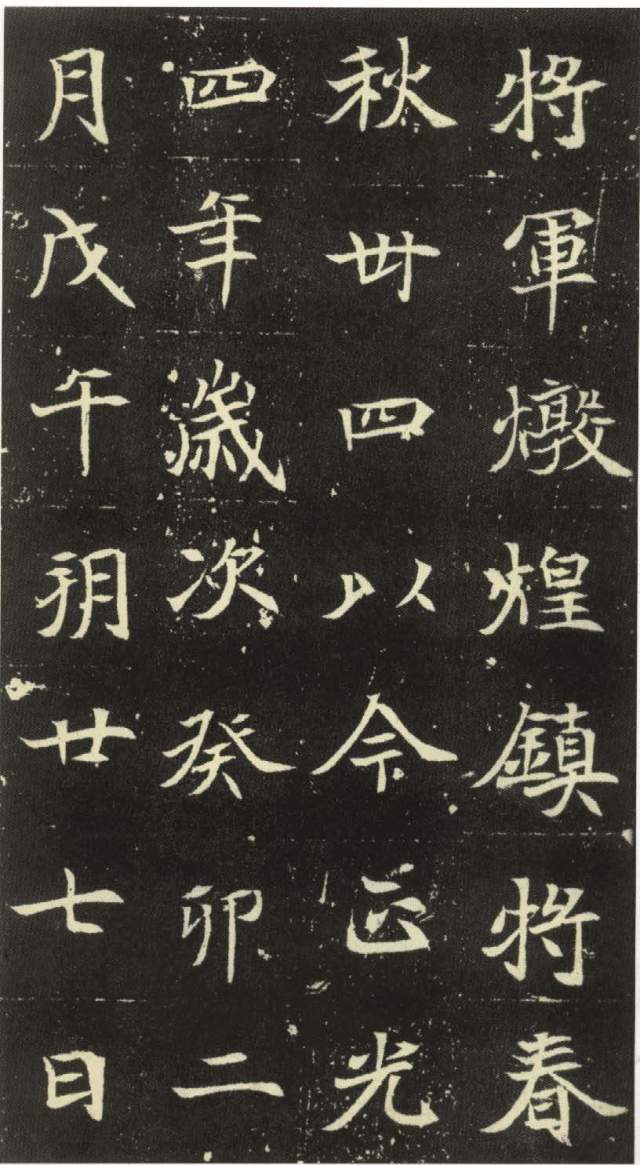 将軍燉煌鎮将春
秋卅四以今正光
四年歲次癸卯二
月戊午朔廿七日